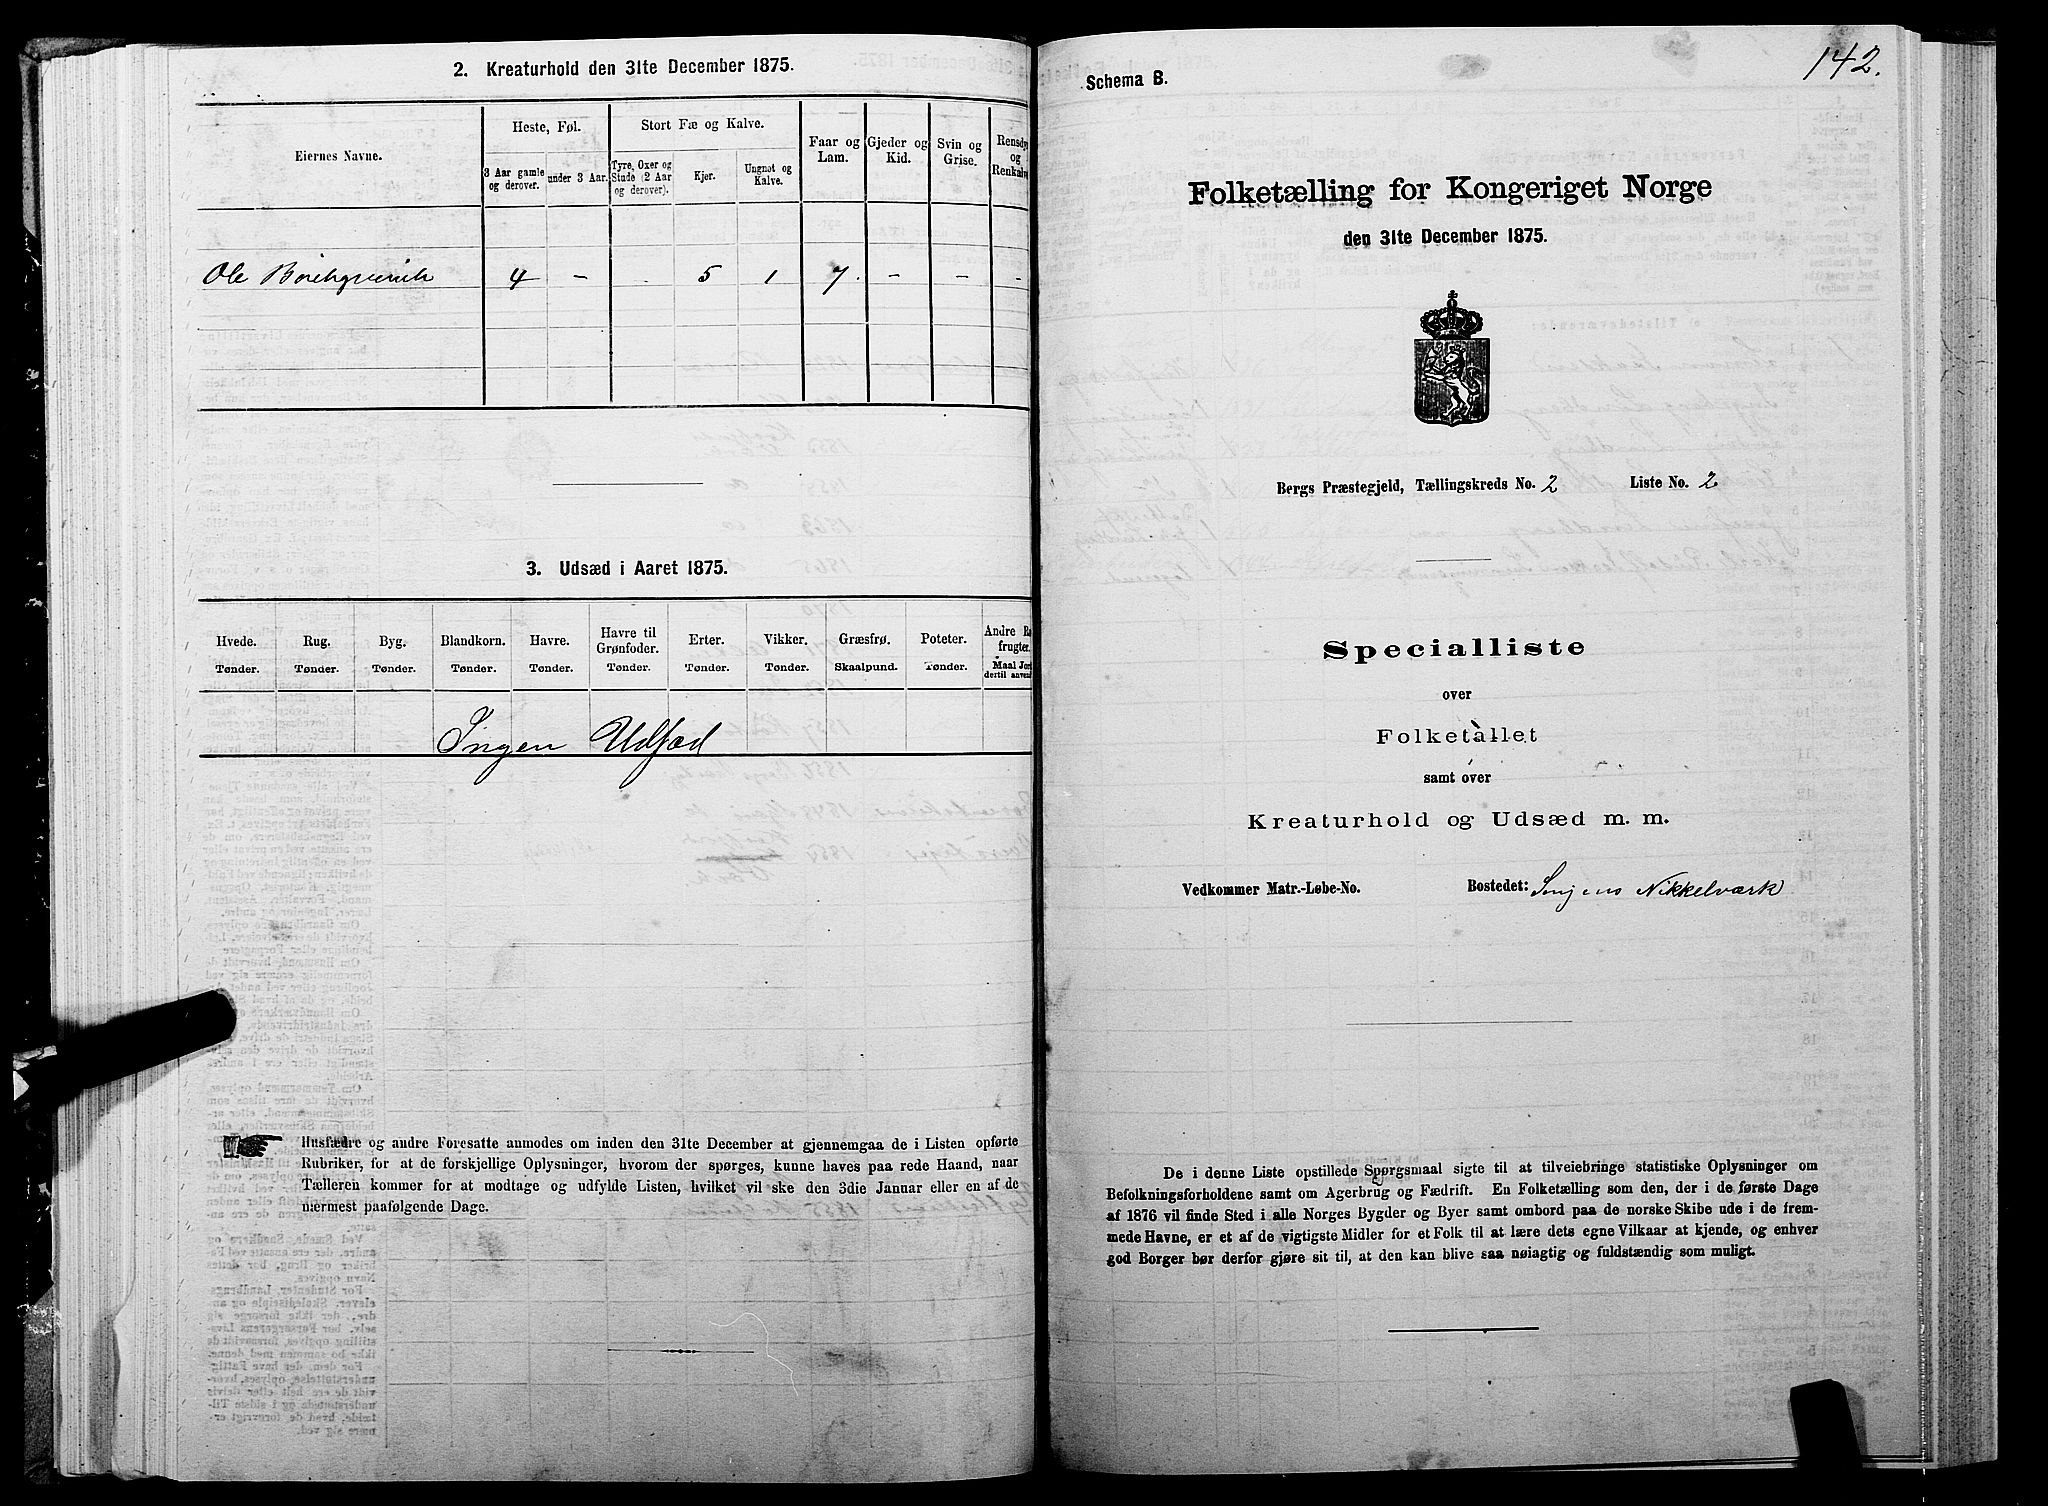 2. Kreaturhold den 31te December 1875.
Eiernes Navne.
Heste, Føl.
Stort Fæ og Kalve.
Faar og
Lam.
Gjeder og
Kid.
Svin og
Grise.
Rensdy
og
Renkalve
3 Aar gamle
og derover.
under 3 Aar.
Tyre, Oxer og
Stude (2 Aar
og derover).
Kjer.
Ungnøt og
Kalve.
Ole 4 - - 5 1 7. - - -
3. Udsæd i Aaret 1875.
Hvede.
Tønder.
Rug.
Tønder.
Byg.
Tønder.
Blandkorn.
Tønder.
Havre.
Tønder.
Havre til
Grønfoder.
Tønder.
Erter.
Tønder.
Vikker.
Tønder.
Græsfrø.
Skaalpund.
Poteter.
Tønder.
Andre Ro
frugter.
Maal Jord
dertil anven
Ingen Udsæd
Husfædre og andre Foresatte anmodes om inden den 31te December at gjennemgaa de i Listen opførte
Rubriker, for at de forskjellige Oplysninger, hvorom der spørges, kunne haves paa rede Haand, naar
Tælleren kommer for at modtage og udfylde Listen, hvilket vil ske den 3die Januar eller en af de
nærmest paafølgende Dage.
142.
Schema B.
Folketælling for Kongeriget Norge
den 31te December 1875.
Bergs Præstegjeld, Tællingskreds No. 2 Liste No. 2
Specialliste
over
Folketallet
samt over
Kreaturhold og Udsæd m. m.
Vedkommer Matr.-Løbe-No. Bostedet: Nikkelværk
De i denne Liste opstillede Spørgsmaal sigte til at tilveiebringe statistiske Oplysninger om
Befolkningsforholdene samt om Agerbrug og Fædrift. En Folketælling som den, der i de første Dage
af 1876 vil finde Sted i alle Norges Bygder og Byer samt ombord paa de norske Skibe ude i de frem-
mede Havne, er et af de vigtigste Midler for et Folk til at lære dets egne Vilkaar at kjende, og enhver
god Borger bør derfor gjøre sit til, at den kan blive saa nøiagtig og fuldstændig som muligt.